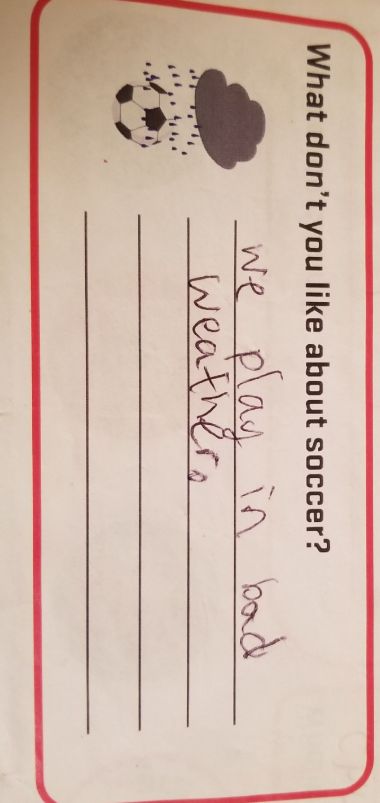 What don't you like about soccer?
we play in bad
weather.